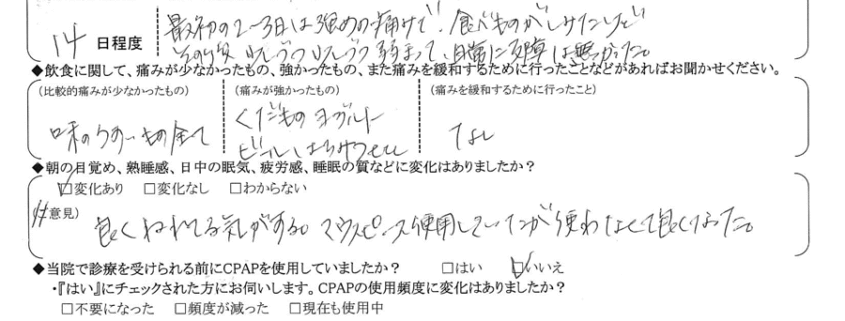 最初の2~3日は強めの痛みで、食べものがしみたりで
14 日程度 その後 少しづつ少しづつ弱まって、日常に支障は無かった。
◆飲食に関して、痛みが少なかったもの、強かったもの、また痛みを緩和するために行ったことなどがあればお聞かせください。
(比較的痛みが少なかったもの) (痛みが強かったもの) (痛みを緩和するために行ったこと)
くだもの ヨーグルト
味のうすいもの全て なし
ビール
◆朝の目覚め、熟睡感、日中の眠気、疲労感、睡眠の質などに変化はありましたか?
☑変化あり □変化なし □わからない
意見)
良くねれてる気がする。マウスピース使用していたが使わなくて良くなった。
◆当院で診療を受けられる前にCPAPを使用していましたか? □はい ☑いいえ
・『はい』にチェックされた方にお伺いします。CPAPの使用頻度に変化はありましたか?
□不要になった □頻度が減った □現在も使用中